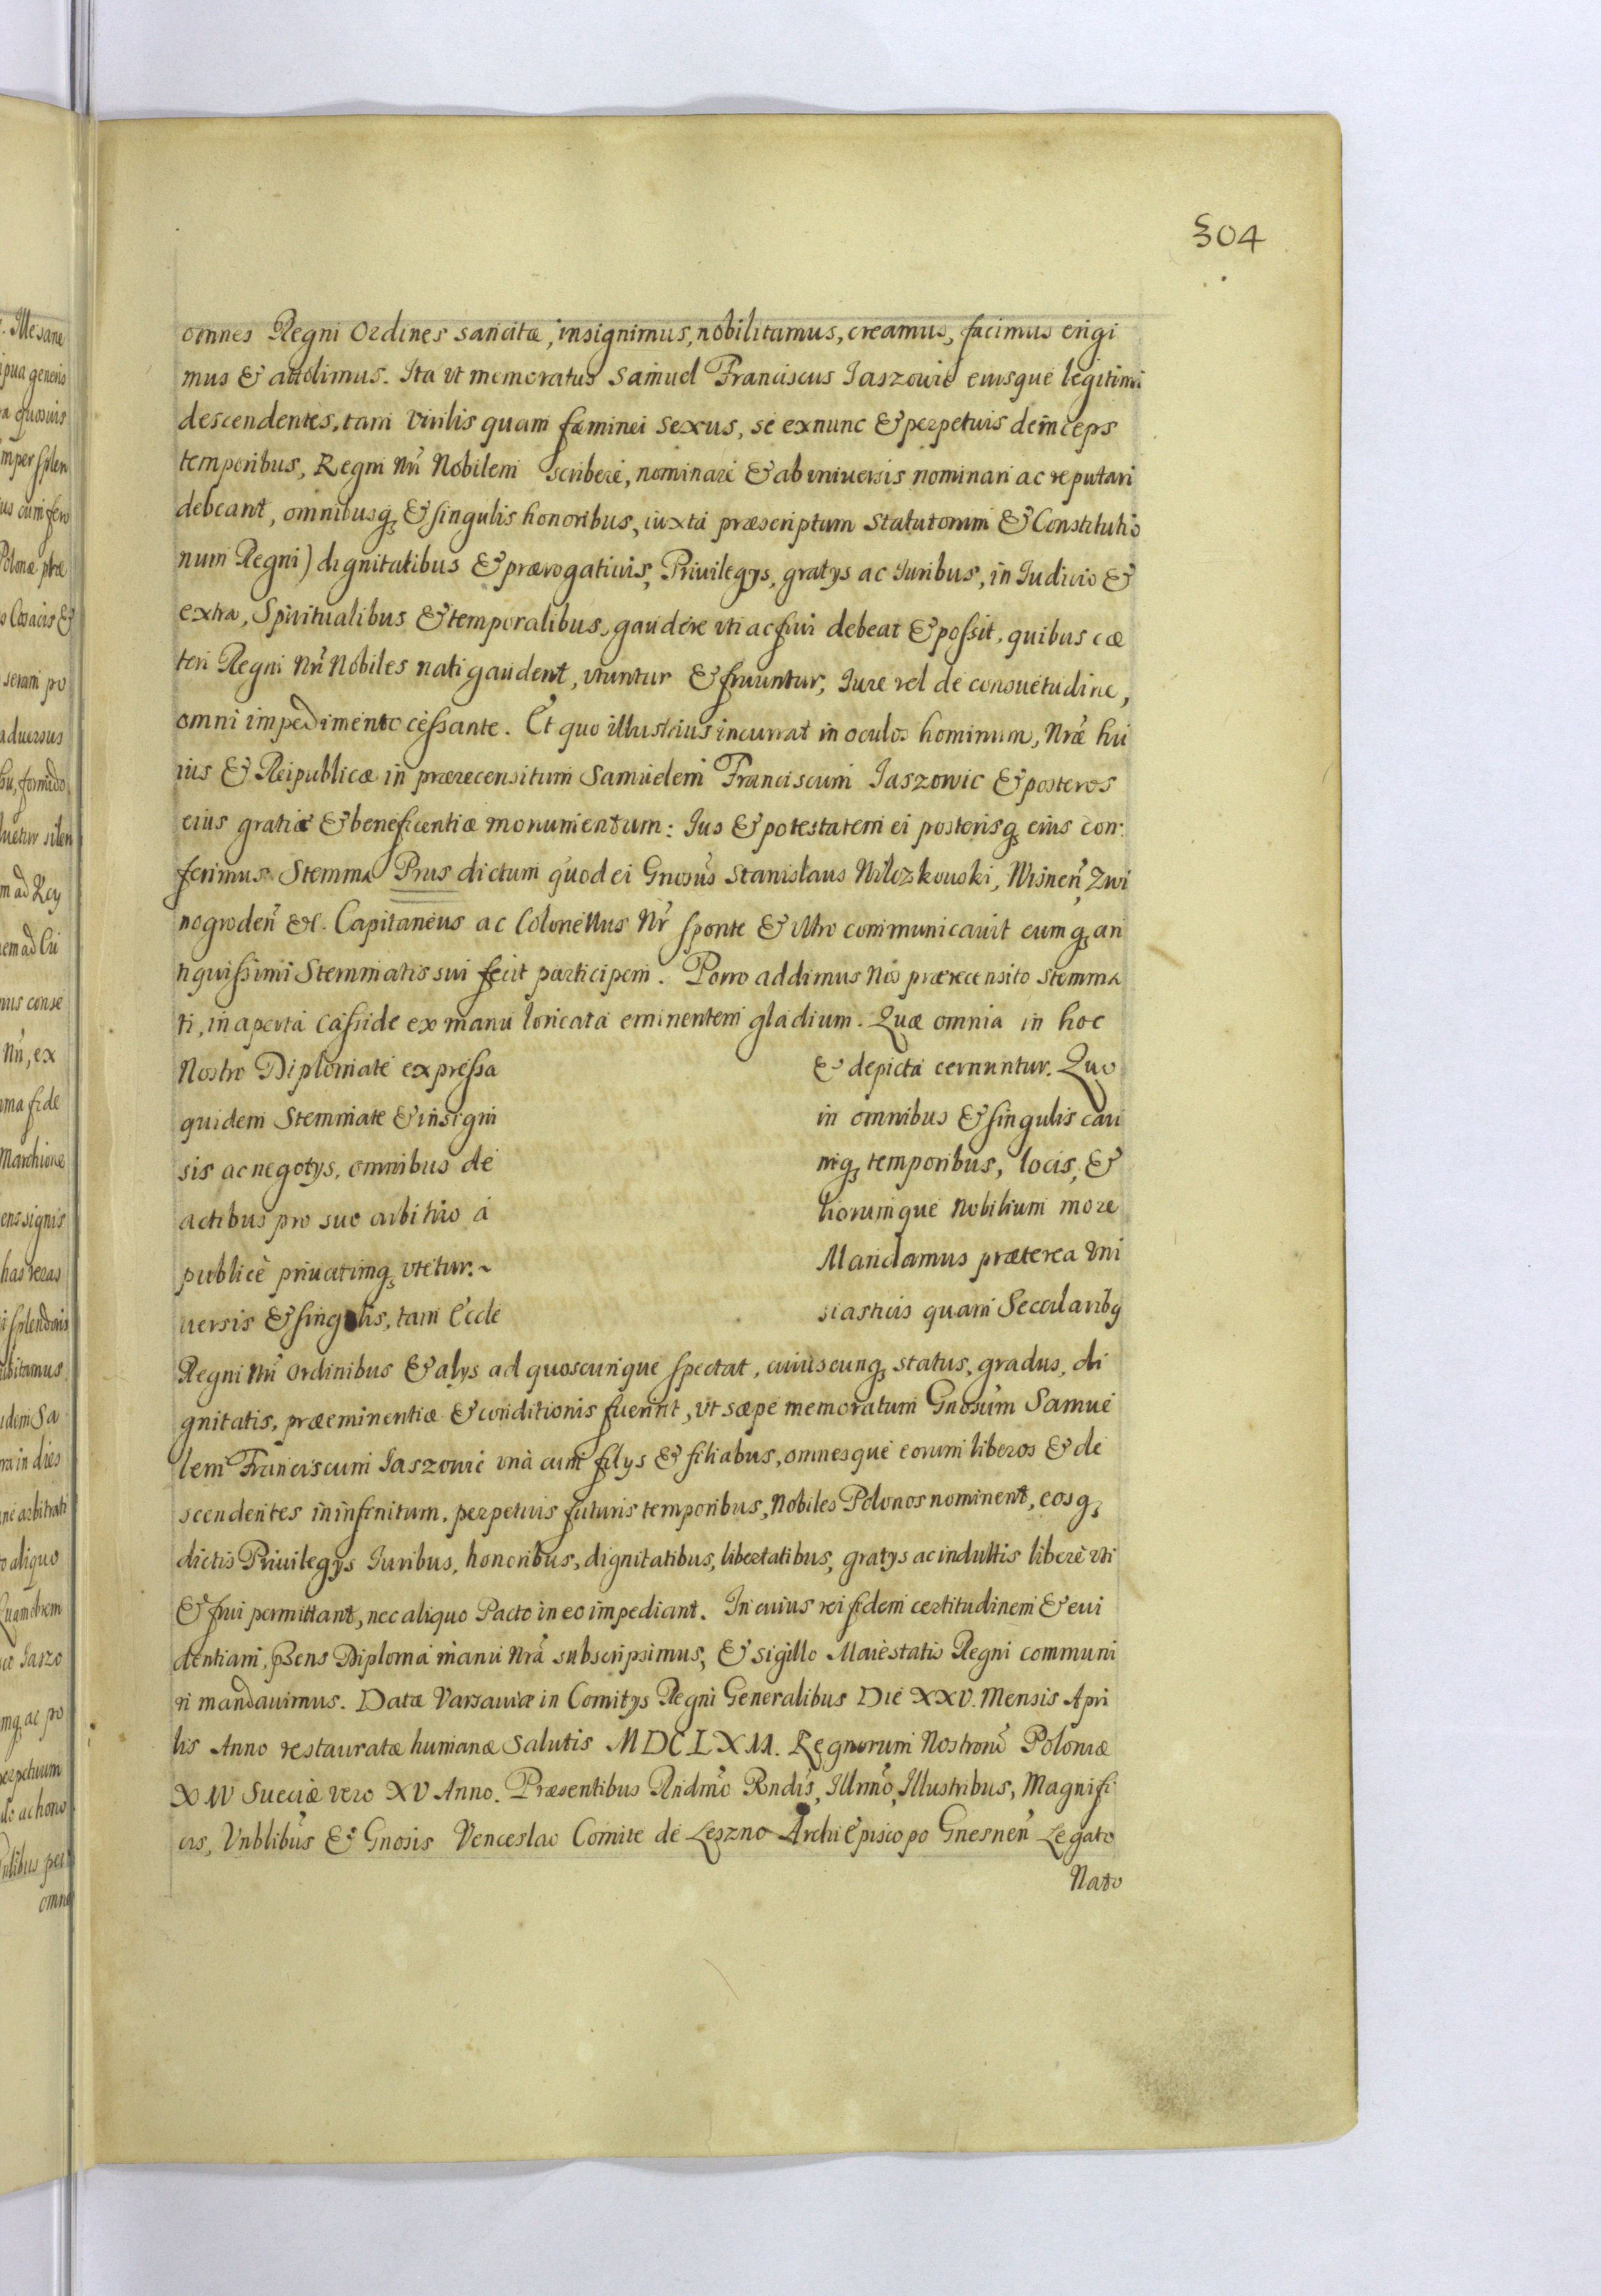 304
omnes Regni Ordines sancitæ, insignimus, nobilitamus, creamus, facimus erigi
mus & attolimus. Ita ut memoratus Samuel Franciscus Jaszowic eiusque legitimi
descendentes, tam virilis quam fæminei sexus, se exnunc & perpetuis deinceps
temporibus, Regni Nri Nobilem scribere, nominare & ab universis nominari ac reputari
debeant, omnibusq₃ & singulis honoribus, iuxta præscriptum Statutorum & Constitutio
num Regni) dignitatibus & prærogativis, Privilegys, gratys ac Iuribus, in Iudicio &
extra, Spiritualibus & temporalibus, gaudere uti ac frui debeat & possit, quibus cæ
teri Regni Nri Nobiles nati gaudent, utuntur & fruuntur, Iure vel de consuetudine,
omni impedimento cessante. Et quo illustrius incurrat in oculos hominum, Nræ hu
ius & Reipublicæ in prærecensitum Samuelem Franciscum Jaszowic & posteros
eius gratiæ & beneficentiæ monumentum: Ius & potestatem ei posterisq₃ eius con
ferimus Stemma Prus dictum quod ei Gnosus Stanislaus Wilczkouski, Wisnen, Zwi
nogroden & Capitaneus ac Colonellus Nr sponte & ultro communicavit eumq₃ an
tiquissimi Stemmatis sui fecit participem. Porro addimus Nos prærecensito stemma
ti, in aperta casside ex manu loricata eminentem gladium. Quæ omnia in hoc
Nostro Diplomate expressa & depicta cernuntur. Quo
quidem Stemmate & insigni in omnibus & singulis cau
sis ac negotys, omnibus de niq₃ temporibus, locis, &
actibus pro suo arbitrio a liorumque Nobilium more
publicè privatimq₃ utetur.~ Mandamus præterea Uni
uersis & singulis, tam Eccle siasticis quam Secularibq
Regni Nri Ordinibus & alys ad quoscunque spectat, cuiuscunq₃ status, gradus, di
gnitatis, præeminentiæ & conditionis fuerint, ut sæpe memoratum Gnosum Samue
lem Franciscum Jaszowic unà cum filys & filiabus, omnesque eorum liberos & de
scendentes in infinitum, perpetuis futuris temporibus, Nobiles Polonos nominent, eosq₃
dictis Privilegys Iuribus, honoribus, dignitatibus, libertatibus, gratys ac indultis liberè uti
& frui permittant, nec aliquo Pacto in eo impediant. In cuius rei fidem certitudinem & eui
dentiam, pñs Diploma manu Nrâ subscripsimus, & sigillo Maiestatis Regni communi
ri mandavimus. Datæ Varsaviæ in Comitys Regni Generalibus Die XXV. Mensis Apri
lis Anno restauratæ humanæ Salutis MDCLXII. Regnorum Nostrorũ Poloniæ
XIV Sueciæ vero XV Anno. Præsentibus Rndmo Rndis, Illrmo, Illustribus, Magnifi
cis, Vnblibus & Gnosis Venceslao Comite de Leszno Archi Episcopo Gnesnen Legato
Nato